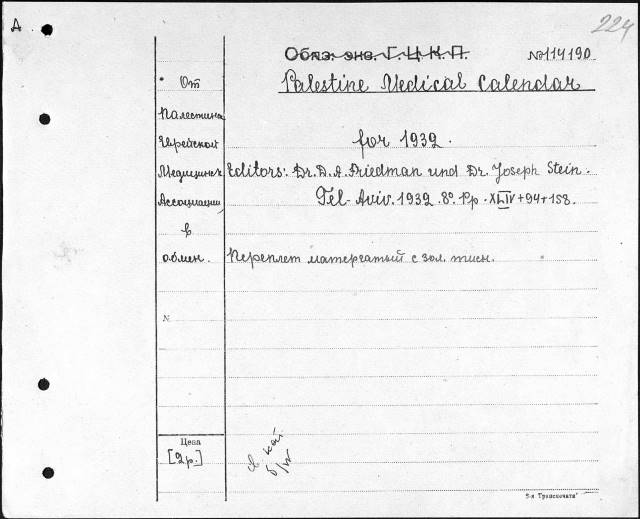 А
224
Обяз. экз. Г. Ц. К. П.
№ 114190
От
Palestine Medical Calendar
Палестина
Еврейской
for 1932.
Медицинск
Editors: Dr. D. A. Friedman und Dr. Joseph Stein.
Ассоциации
Tel-Aviv. 1932. 8°. Pp. XLIV+94+158.
в
обмен.
Переплет матерчатый с зол. тисн.
№
Цена
[2р.]
кат.
5-я Транспечати